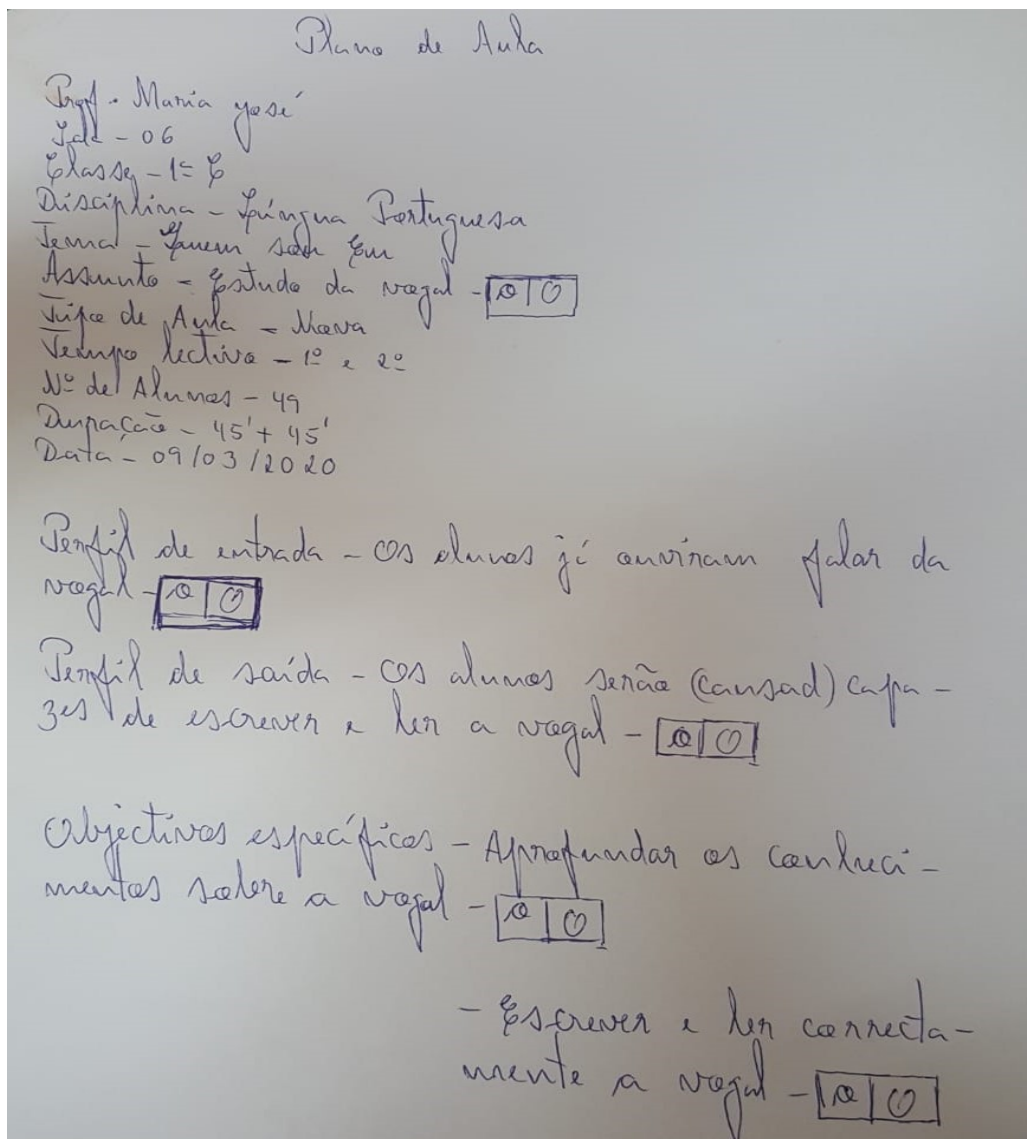 Plano de Aula
Prof - Maria José
Sala - 06
Classe - 1ª C
Disciplina - Língua Portuguesa
Tema - Quem sou Eu
Assunto - Estudo da vogal - o O
Tipo de Aula - Nova
Tempo lectivo - 1º e 2º
Nº de Alunos - 49
Duração - 45' + 45'
Data - 09/03/2020
Perfil de entrada - Os alunos já ouviram falar da
vogal - o O
Perfil de saída - Os alunos serão (cansad) capa-
zes de escrever e ler a vogal - o O
Objectivos específicos - Aprofundar os conheci-
mentos sobre a vogal - o O
- Escrever e ler correcta-
mente a vogal - o O